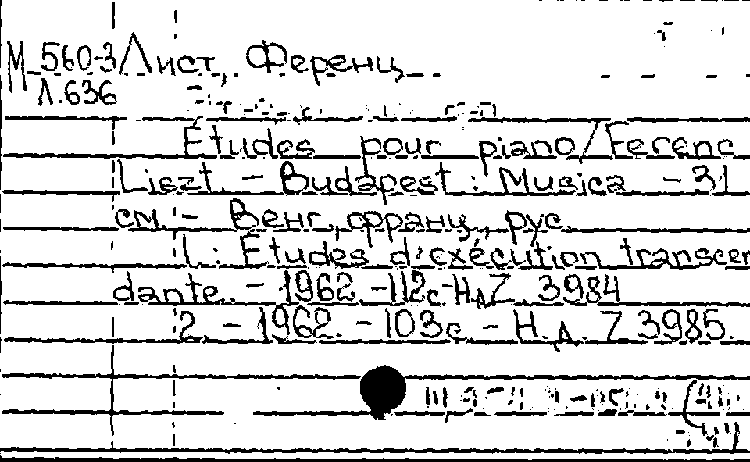 М 560-3 Лист, Ференц
Л.636
Études pour piano/Ferenc
Liszt. – Budapest : Musica. – 31
см. – Венг., франц., рус.
1.: Études d'exécution transcen
dante. – 1962. – 112с. – Н.Д.Z. 3984
2. – 1962. – 103с. – Н.Д. Z. 3985.